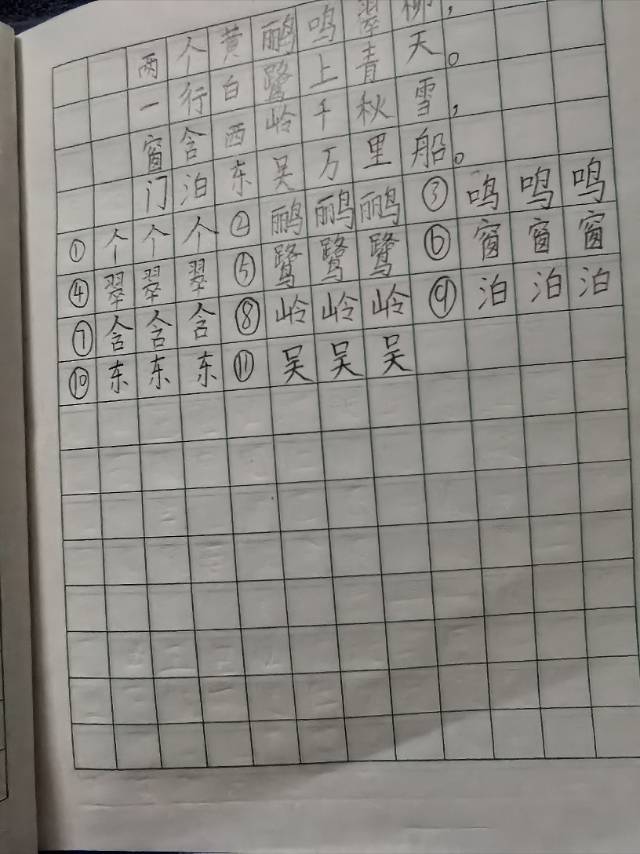 两个黄鹂鸣翠柳，
一行白鹭上青天。
窗含西岭千秋雪，
门泊东吴万里船。
①个个个②鹂鹂鹂③鸣鸣鸣
④翠翠翠⑤鹭鹭鹭⑥窗窗窗
⑦含含含⑧岭岭岭⑨泊泊泊
⑩东东东⑪吴吴吴